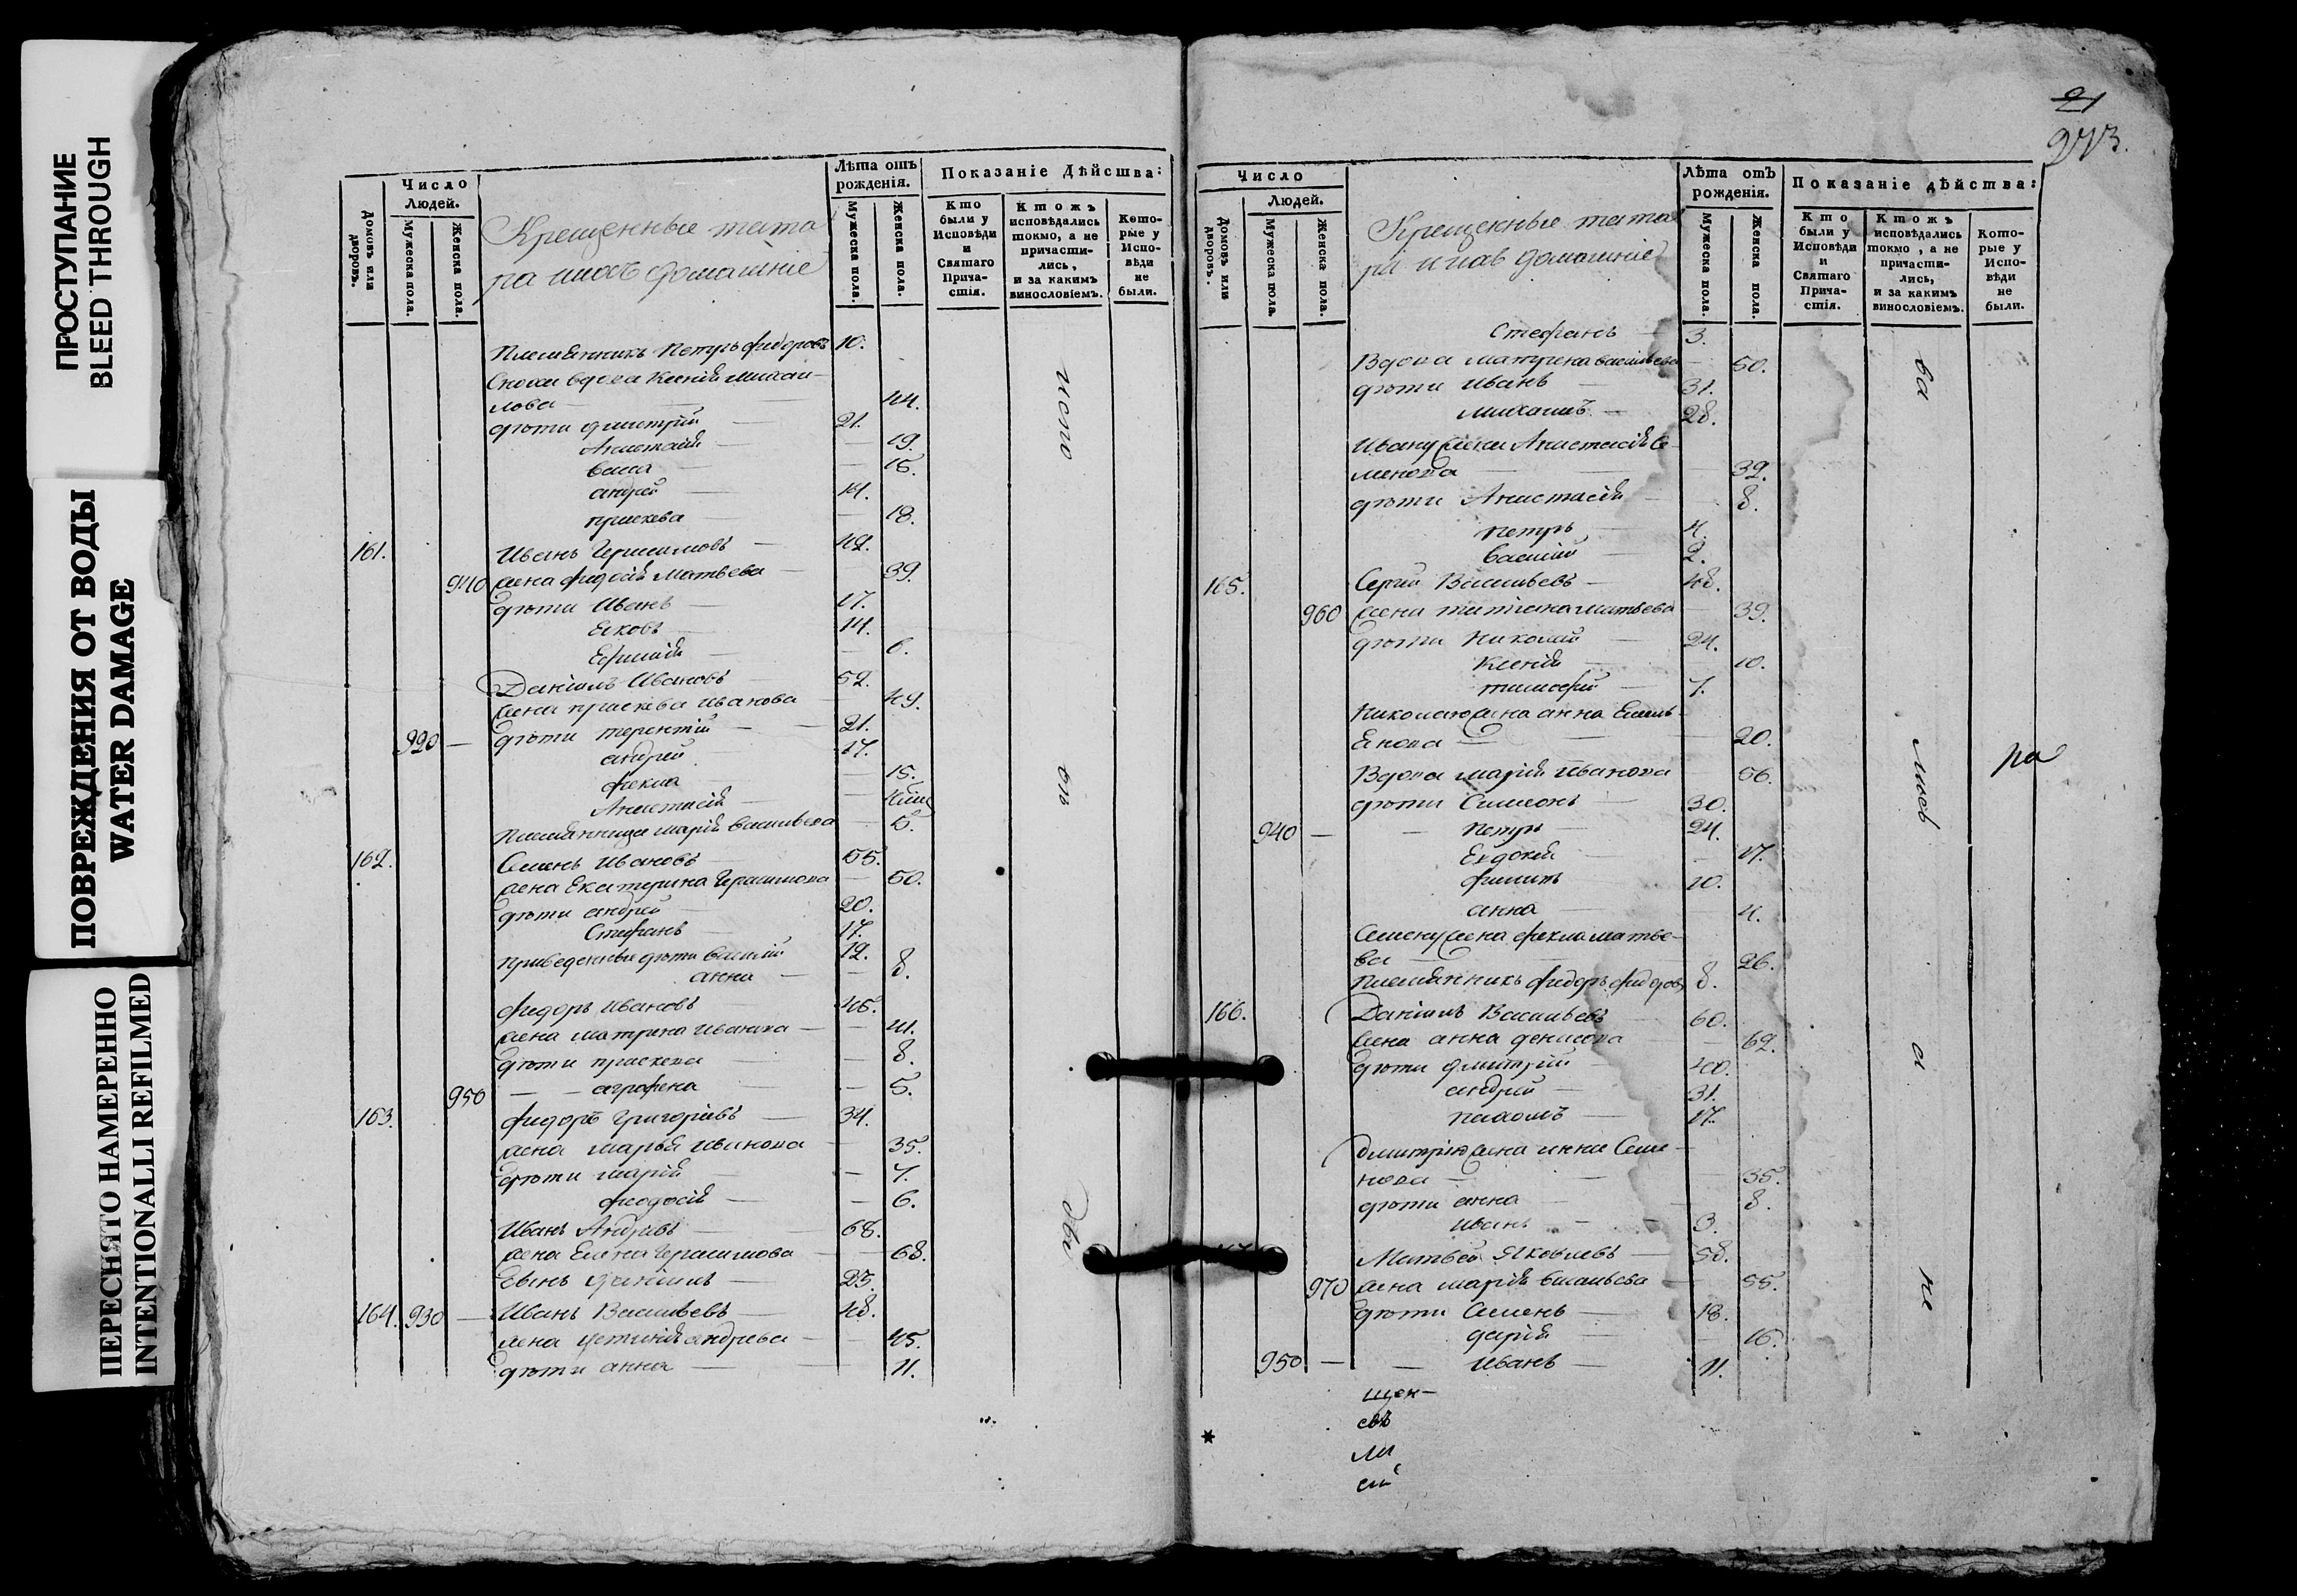 ПРОСТУПАНИЕ
BLEED THROUGH
ПОВРЕЖДЕНИЯ ОТ ВОДЫ
WATER DAMAGE
ПЕРЕСНЯТО НАМЕРЕННО
INTENTIONALLI REFILMED
Число
Людей.
Домовъ или дворовъ.
Мужеска пола.
Женска пола.
Крещенные тата
ра ихъ домашніе
Лѣта отъ
рожденія.
Мужеска пола.
Женска пола.
Показаніе Дѣйства:
Кто были у Исповѣди и Святаго Прича-стія.
Ктожъ исповѣдались токмо, а не причасти-лись, и за какимъ винословіемъ.
Кото-рые у Испо-вѣди не были.
Племянникъ Петръ Федоровъ 10.
Сноха вдова Ксенія Михаи-
лова 44.
дѣти Дмитрій 21.
Анастасія 19.
15.
андрей 14.
праскева 18.
161. Иванъ Герасимовъ 42.
940 жена Федосія Матвѣева 39.
дѣти Иванъ 17.
Яковъ 14.
6.
Данiилъ Ивановъ 52.
жена праскева Иванова 49.
920 — дѣти терентій 21.
андрей 17.
фекла 15.
Анастасія
Племянница марія Васильева 5.
162. Семенъ Ивановъ 55.
жена Екатерина Герасимова 50.
дѣти андрей 20.
Стефанъ 17.
приведенные дѣти Василій 12.
анна 8.
Федоръ Ивановъ 45.
жена матрена Иванова 41.
дѣти праскева 8.
950 — аграфена 5.
163. Федоръ Григорьевъ 34.
жена марья Иванова 35.
дѣти марія 7.
феодосія 6.
Иванъ Андреевъ 68.
жена Елена Герасимова 68.
данiилъ 23.
164. 930 — Иванъ Васильевъ 48.
жена устинія андреева 45.
дѣти анна 11.
испо
Число
Людей.
Домовъ или дворовъ.
Мужеска пола.
Женска пола.
Крещенные тата
ра и ихъ домашніе
Лѣта отъ
рожденія.
Мужеска пола.
Женска пола.
Показаніе дѣйства:
Кто были у Исповѣди и Святаго Прича-стія.
Ктожъ исповѣдались токмо, а не причасти-лись, и за какимъ винословіемъ.
Кото-рые у Испо-вѣди не были.
Стефанъ 3.
Вдова матрена васильева 50.
дѣти Иванъ 31.
михаилъ 28.
Ивану жена Анастасія Се-
менова 39.
дѣти Анастасія 8.
петръ 4.
Василій 2.
165. Сергій Васильевъ 48.
960 жена татiана матвѣева 39.
дѣти Николай 24.
Ксенія 10.
тимофей 7.
Николаю жена анна Емель-
янова 20.
Вдова марія Иванова 56.
дѣти Симеонъ 30.
940 — петръ 24.
Евдокея 17.
филипъ 10.
анна 4.
Семену жена фекла матве-
ва 26.
племянникъ федоръ федоровъ 8.
166. Данiилъ Васильевъ 60.
жена анна денисова 62.
дѣти дмитрій 40.
андрей 31.
пахомъ 17.
дмитрію жена анна Семе-
нова 35.
дѣти анна 8.
иванъ 3.
Матвей Яковлевъ 58.
970 жена марія васильева 55.
дѣти Семенъ 18.
дарія 16.
950 — иванъ 11.
ва
ра
не